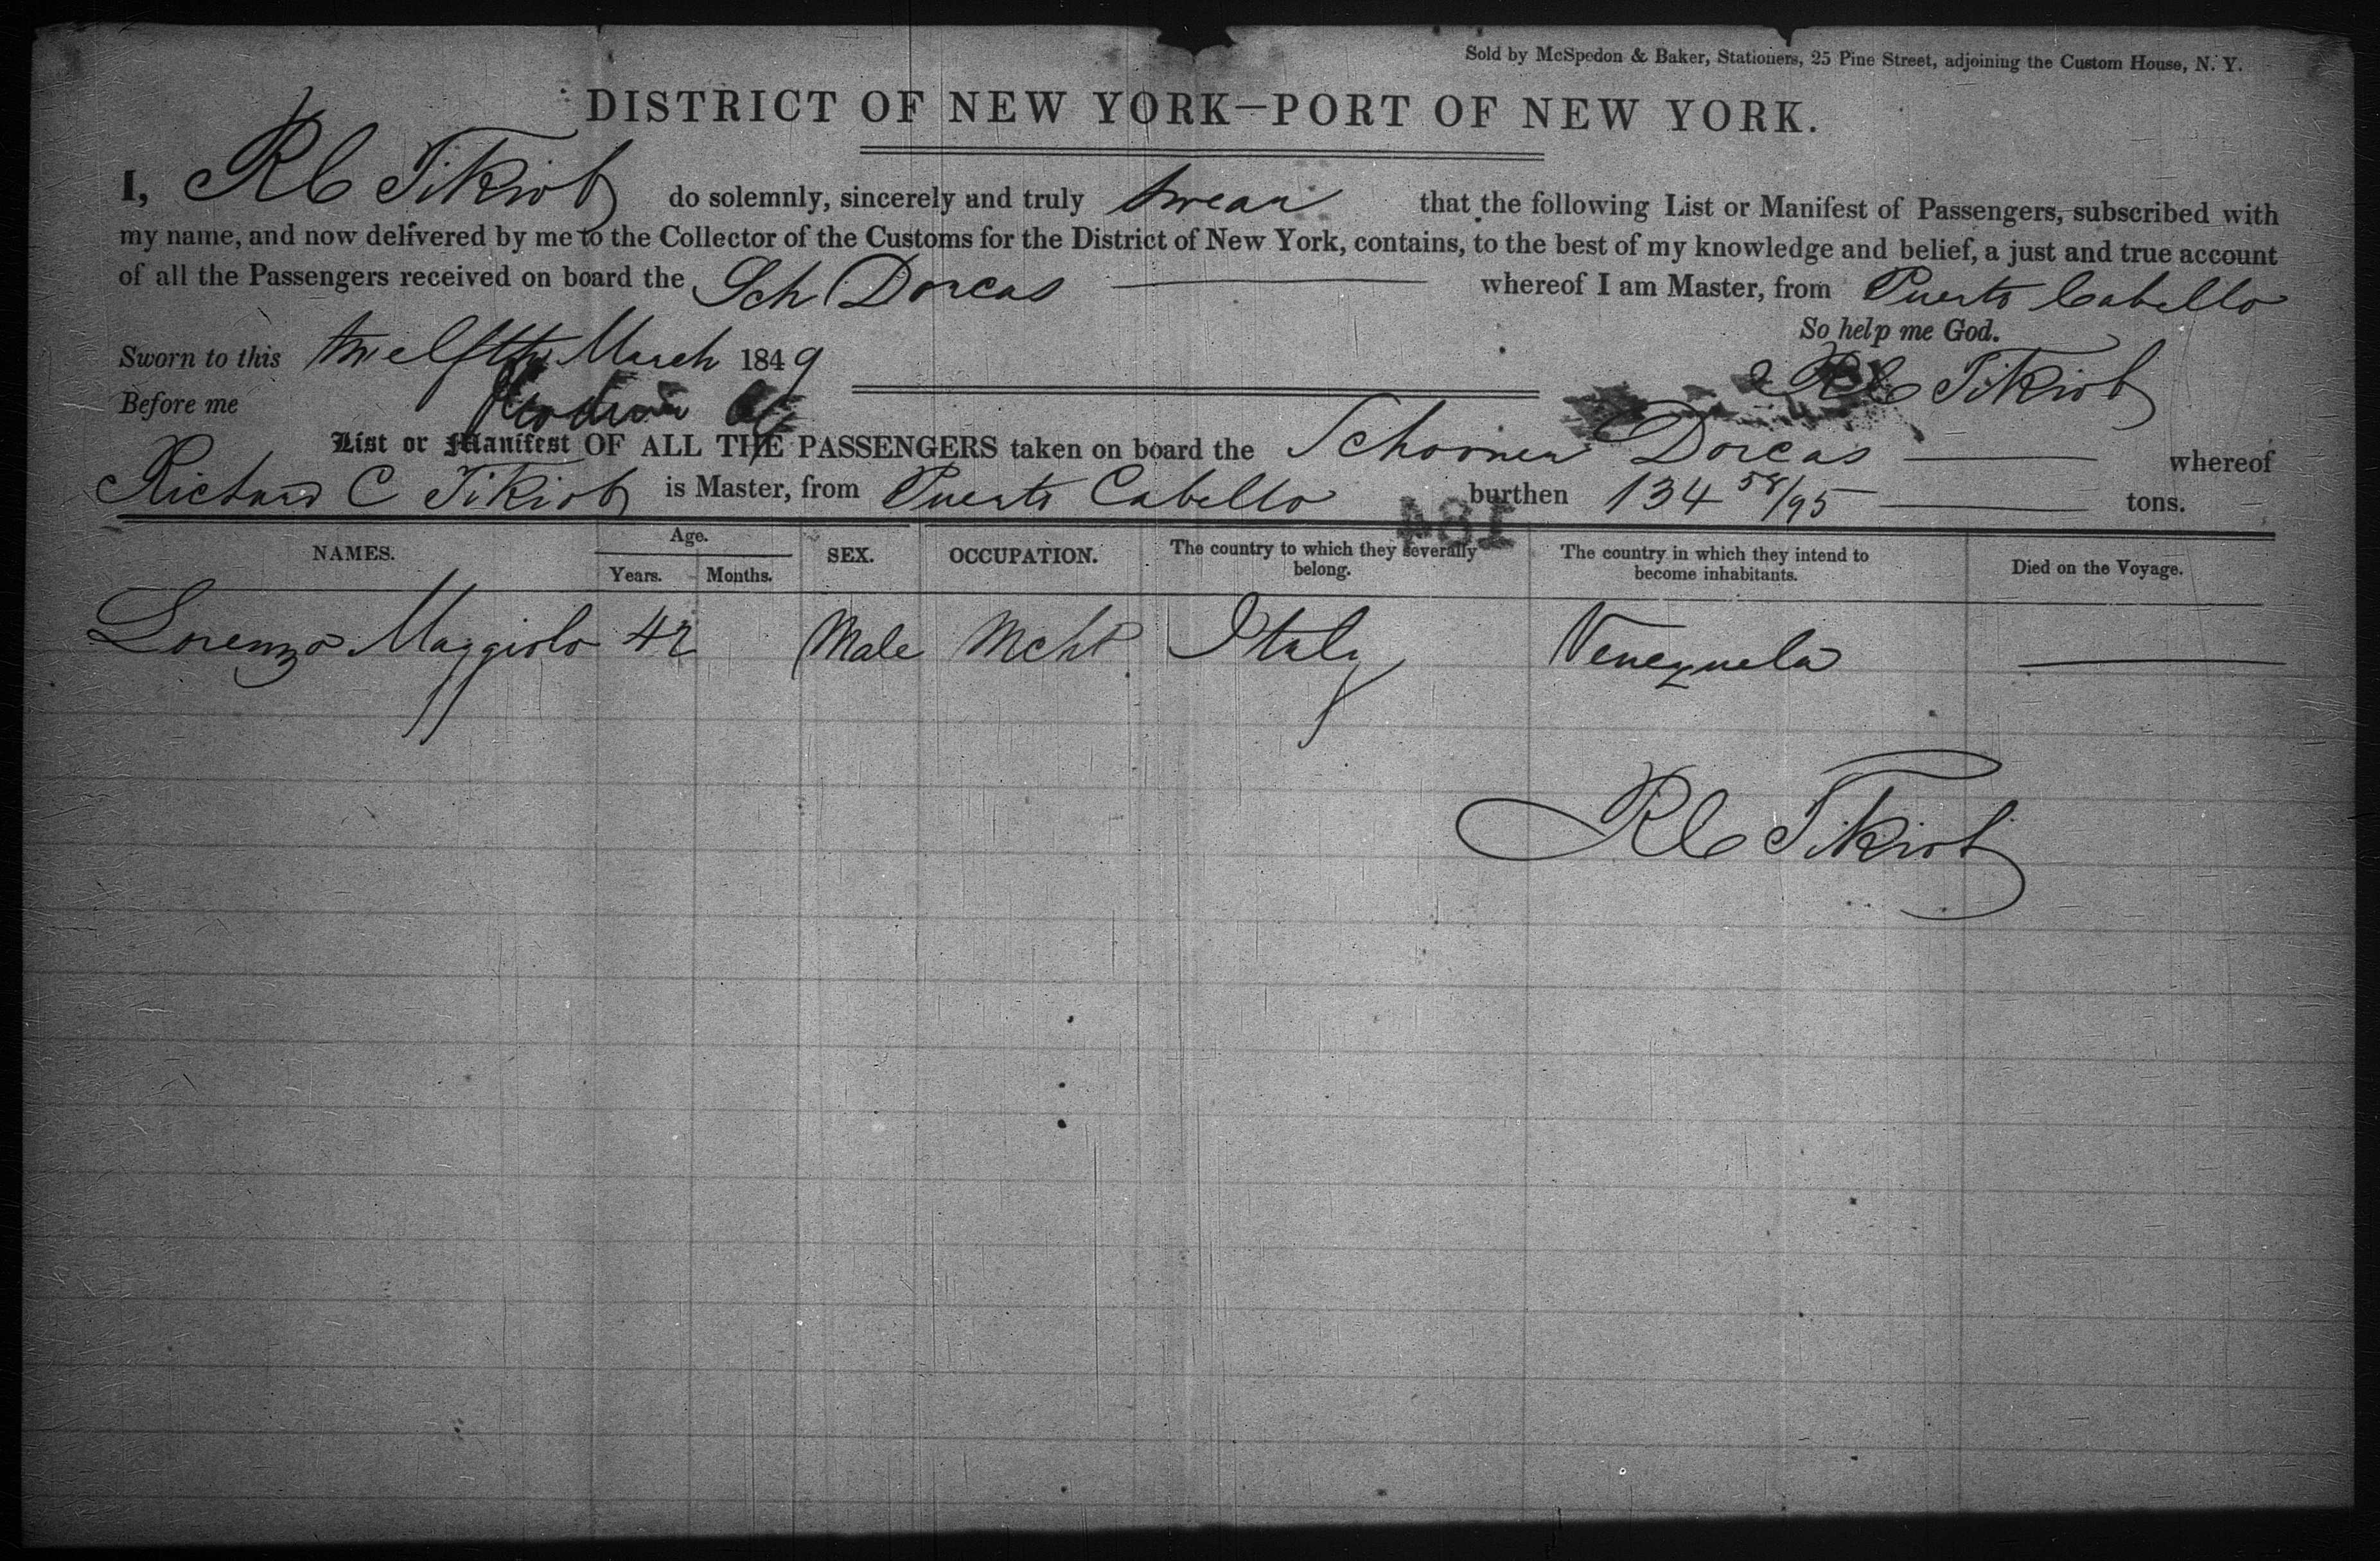 Sold by McSpedon & Baker, Stationers, 25 Pine Street, adjoining the Custom House, N. Y.
DISTRICT OF NEW YORK—PORT OF NEW YORK.
I, R C Tikiob do solemnly, sincerely and truly swear that the following List or Manifest of Passengers, subscribed with
my name, and now delivered by me to the Collector of the Customs for the District of New York, contains, to the best of my knowledge and belief, a just and true account
of all the Passengers received on board the Sch Dorcas whereof I am Master, from Puerto Cabello
So help me God.
Sworn to this twelfth March 1849
R C Tikiob
Before me
List or Manifest OF ALL THE PASSENGERS taken on board the Schooner Dorcas whereof
Richard C Tikiob is Master, from Puerto Cabello burthen 134 58/95 tons.
184
NAMES. Age. Years. Months. SEX. OCCUPATION. The country to which they severally belong. The country in which they intend to become inhabitants. Died on the Voyage.
Lorenzo Maggiolo 42 Male Mcht Italy Venezuela
R C Tikiob